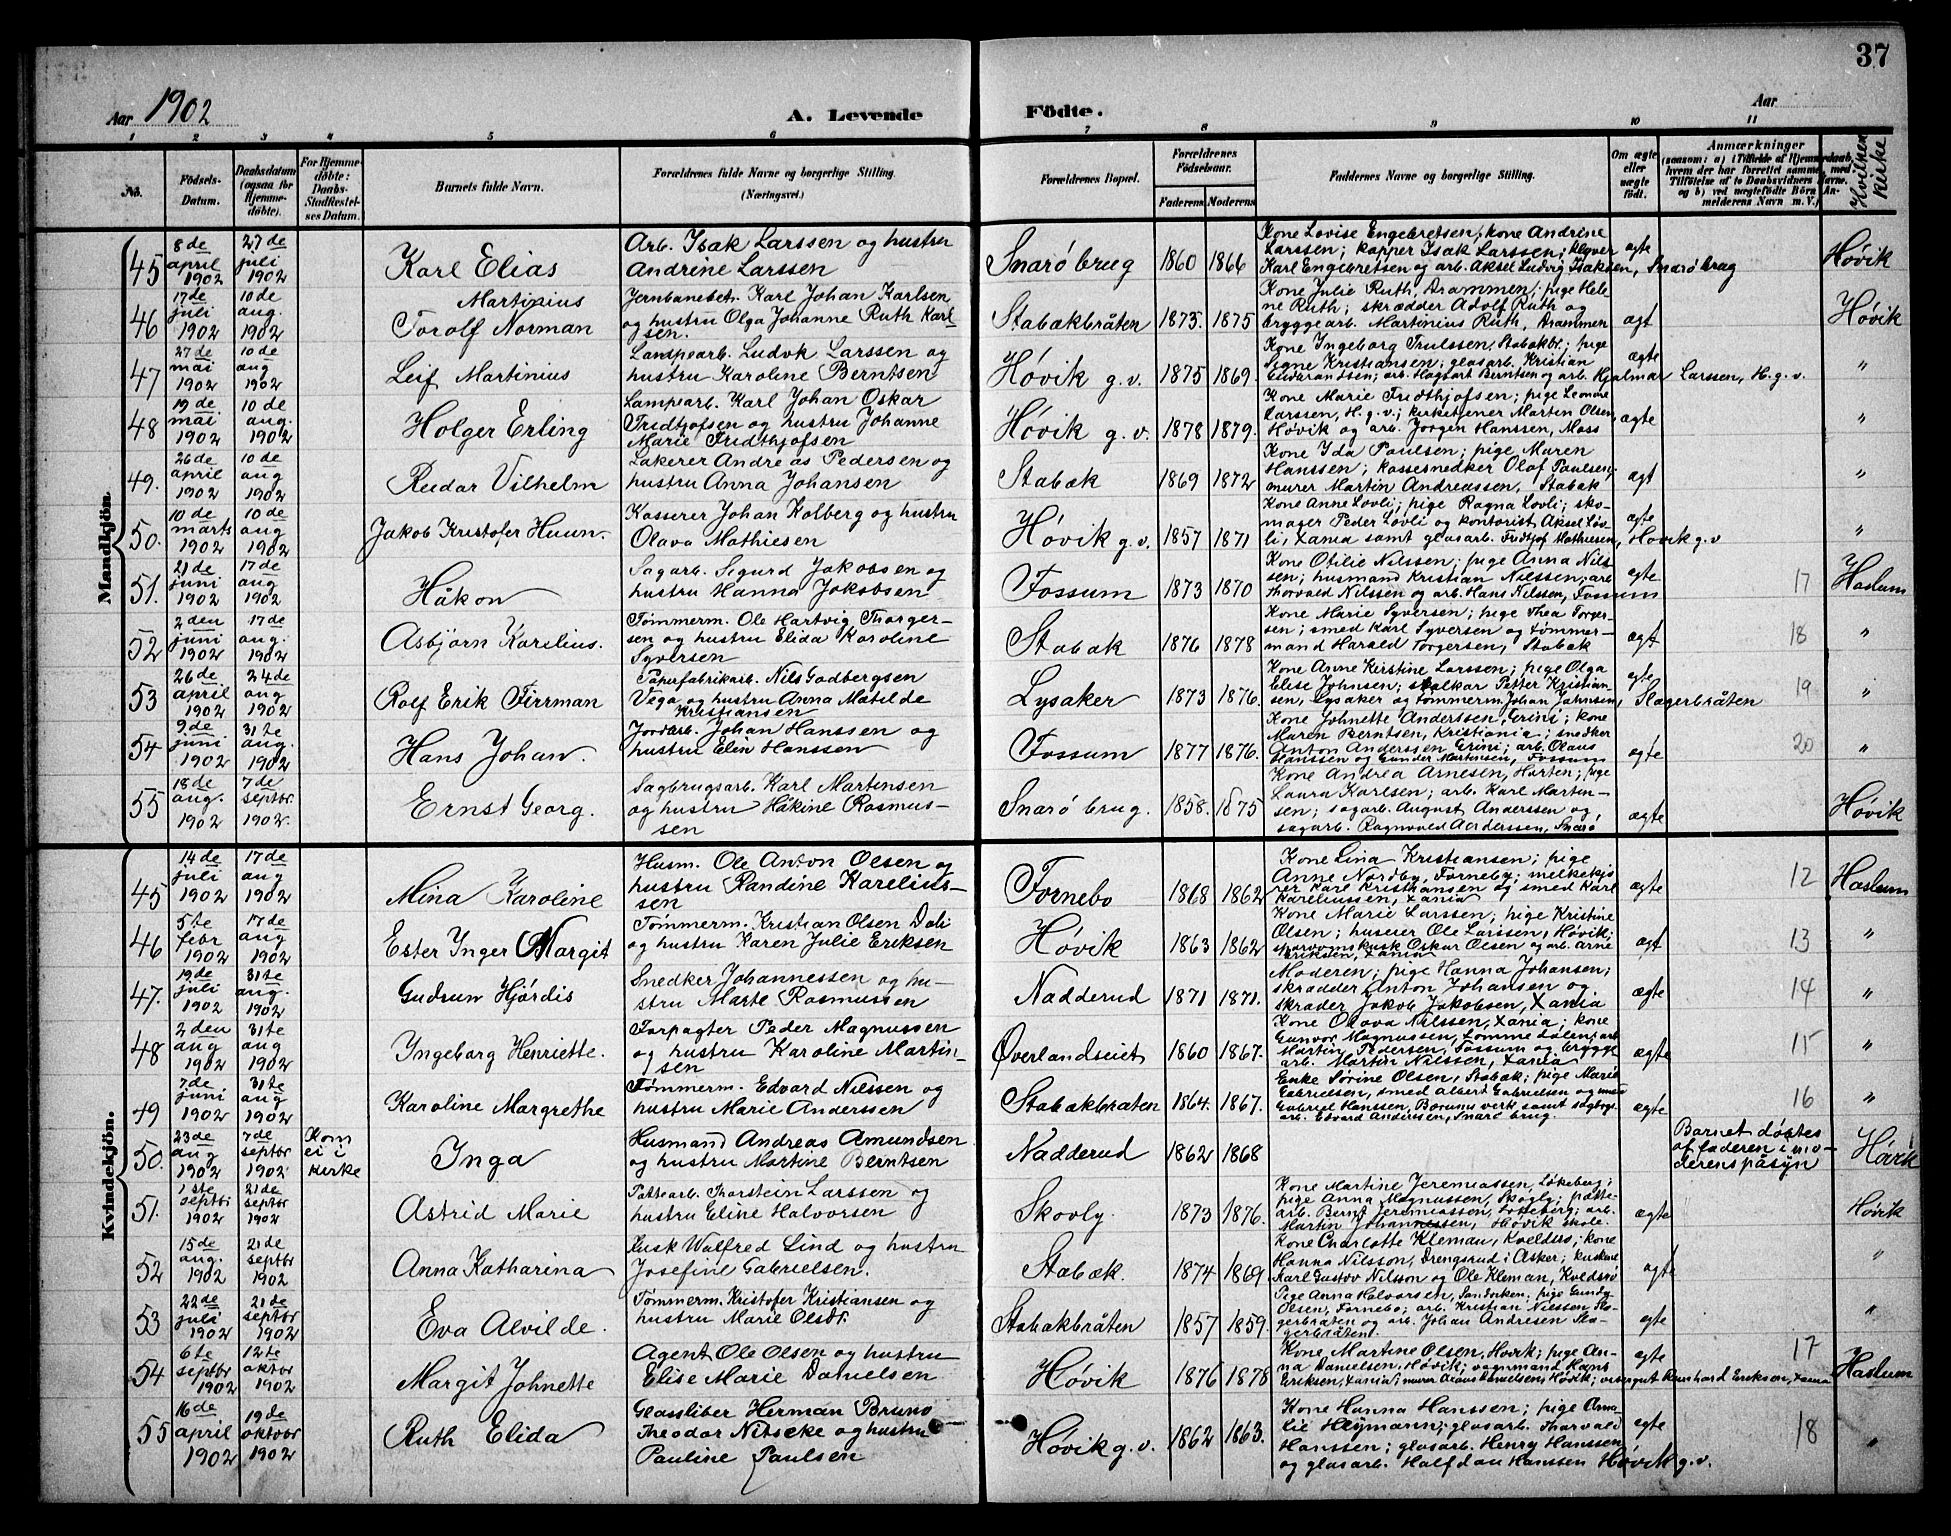 37
Aar 1902
A. Levende Födte.
Aar
1 2 3 4 5 6 7 8 9 10 11
No.
Födsels-Datum.
Daabsdatum (ogsaa for Hjemme-døbte).
For Hjemme-døbte: Daabs-Stadfæstel-ses Datum.
Barnets fulde Navn.
Forældrenes fulde Navne og borgerlige Stilling.
(Næringsvei.)
Forældrenes Bopæl.
Forældrenes Fødselsaar.
Faderens Moderens
Faddernes Navne og borgerlige Stilling.
Om ægte eller uægte født.
Anmærkninger
Hvilken Kirke
Mandkjön.
45 8de april 1902 27de juli 1902 Karl Elias
Arb. Isak Larssen og hustru
Andrine Larssen
Snarö brug 1860 1866
Kone Lovise Engebretsen, kone Andrine
Larssen; kapper Isak Larssen; kløver
Karl Engebretsen og arb. Aksel Ludvig Isaksen, Snarö brug
ægte Høvik
46 17de juli 1902 10de aug. 1902 Martinius
Torolf Norman
Jernbanebet. Karl Johan Karlsen
og hustru Olga Johanne Ruth Karl-
sen.
Stabækbråten 1873. 1875
Kone Julie Ruth, Drammen; pige Hele-
ne Ruth; skrædder Adolf Ruth og
bryggearb. Martinius Ruth, Drammen
ægt Høvik
47 27de mai 1902 10de aug 1902 Leif Martinius
Lampearb. Ludvk Larssen og
hustru Karoline Berntsen
Høvik g.v. 1875 1869.
Kone Ingeborg Trulssen, Stabækbr.; pige
Signe Kristiansen; glasarb. Kristian
arb. Hagbart Berntsen og arb. Hjalmar Larssen, H.g.v.
ægte "
48 19de mai 1902 10de aug. 1902 Holger Erling
Lampearb. Karl Johan Oskar
Fridtjofsen og hustru Johanne
Marie Fridthjofsen
Høvik g.v. 1878 1879.
Kone Marie Fridthjofsen; pige Leonore
Larssen, H.g.v.; kirketjener Martin Olsen,
Høvik og arb. Jörgen Hanssen, Moss
ægte "
49. 26de april 1902 10de aug 1902 Reidar Vilhelm
Lakerer Andreas Pedersen og
hustru Anna Johansen
Stabæk 1869 1872
Kone Ida Paulsen; pige Maren
Hanssen; kassesnedker Olaf Paulsen;
murer Martin Andreassen, Stabæk
ægt "
50. 10de marts 1902 10de aug 1902 Jakob Kristofer Huun
Kasserer Johan Kolberg og hustru
Olava Mathiesen
Høvik g.v. 1857 1871
Kone Anne Lovli; pige Ragna Lovli; sko-
mager Peder Lovli og kontorist Aksel Löv-
li, Xania samt glasarb. Fridtjof Mathiesen, Høvik g.v
ægte "
51. 21de juni 1902 17de aug 1902 Håkon
Sagarb. Sigurd Jakobsen og
hustru Hanna Jakobsen
Fossum 1873 1870
Kone Otilie Nilssen; pige Anna Nils-
sen; husmand Kristian Nilssen; arb
Thorvald Nilssen og arb. Hans Nilssen, Fossum
ægte 17 Haslum
52 2den juni 1902 17de aug. 1902 Asbjörn Karelius.
Tömmerm. Ole Hartvig Thorger-
sen og hustru Elida Karoline
Syversen
Stabæk 1876 1878
Kone Marie Syversen; pige Thea Torger-
sen; smed Karl Syversen og tömmer-
mand Harald Torgersen, Stabæk
ægt 18 "
53 26de april 1902 24de aug 1902 Rolf Erik Firrman
Papirfabrikarb. Nils Godbergsen
Vega og hustru Anna Matilde
Kristiansen
Lysaker 1873 1876.
Kone Anne Kirstine Larssen; pige Olga
Elise Johnsen; Petter Kristian-
sen, Lysaker og tømmerm. Johan Johnsen, Slagerbråten
ægte 19 "
54 9de juni 1902 31te aug. 1902 Hans Johan.
Jordarb. Johan Hanssen og
hustru Elin Hanssen
Fossum 1877 1876.
Kone Johnette Anderssen, Grini; kone
Maren Berntsen, Kristiania; snedker
Anton Anderssen Grini; arb. Olaus
Hanssen og Gunder Martinsen, Fossum
ægte 20 "
55 18de aug. 1902 7de septbr. 1902. Ernst Georg.
Sagbrugsarb. Karl Martensen
og hustru Håkine Rasmus-
sen
Snarö brug. 1858. 1875
Kone Andrea Arnesen, Horten; pige
Laura Karlsen; arb. Karl Marten-
sen; sagarb. August Anderssen og
sagarb. Ragnvald Anderssen, Snarö
ægte Høvik
Kvindekjön.
45 14de juli 1902 17de aug 1902 Mina Karoline
Husm. Ole Anton Olsen og
hustru Randine Karelius-
sen
Fornebo 1868 1862
Kone Lina Kristiansen; pige
Anne Nordby, Forneby; melkekjø
rer Karl Kristiansen og smed Karl
Kareliussen, Xania
ægte 12 Haslum
46 5te febr 1902 17de aug 1902 Ester Inger Margit
Tömmerm. Kristian Olsen Dali
og hustru Karen Julie Eriksen
Høvik 1863 1862
Kone Marie Larssen; pige Kristine
Olsen; huseier Ole Larssen, Høvik;
sporvognskusk Oskar Olsen og arb. Arne
Eriksen, Xania
ægt 13 "
47. 19de juli 1902 31te aug. 1902 Gudrun Hjördis
Snedker Johannessen og hu-
stru Marte Rasmussen
Nadderud 1871 1871.
Moderen; pige Hanna Johansen;
skrædder Anton Johansen og
skræder Jakob Jakobsen, Xania
ægte 14 "
48 2den aug 1902 31te aug 1902 Ingeborg Henriette.
Forpagter Peder Magnussen
og hustru Karoline Martin-
sen
Øverlandseiet 1860 1867.
Kone Olava Nilssen, Xania; kone
Gunvor Magnussen, Lommedalen; arb
Martin Pedersen, Fossum og brygge-
arb. Martin Nilssen, Xania
ægte 15 "
49 7de juni 1902 31te aug 1902 Karoline Margrethe
Tømmerm. Edvard Nilssen og
hustru Marie Anderssen
Stabækbraten 1864. 1867.
Enke Sørine Olsen, Stabæk; pige Marie
Gabrielsen, smed Albert Gabrielsen og
Gabriel Hanssen, Bærums verk, samt sagbrgs.
arb. Edvard Anderssen, Snarö brug.
ægte 16 "
50. 23de aug 1902 7de septbr 1902 Kom ei i kirke Inga
Husmand Andreas Amundsen
og hustru Martine Berntsen
Nadderud 1862 1868
Barnet døbtes
af faderen i mo-
derens påsyn
Høvik
51. 1ste septbr 1902 21de septbr 1902 Astrid Marie
Pottearb. Thorstein Larssen og
hustru Eline Halvorsen
Skovly. 1873 1876.
Kone Martine Jeremiassen, Løkeberg;
pige Anna Magnussen, Skogly; potte-
arb. Bernt Jeremiassen, Løkeberg; arb.
Martin Johannessen, Høvik skole.
ægte Høvik
52 15de aug. 1902 21de septbr 1902 Anna Katharina
Kusk Walfred Lind og hustru
Josefine Gabrielsen.
Stabæk. 1874 1869
Kone Charlotte Kleman, Kveldsrö; kone
Hanna Nilsson, Drengsrud i Asker; kuskene
Karl Gustav Nilsson og Ole Kleman, Kveldsrö
ægte "
53 22de juli 1902 21de septbr 1902 Eva Alvilde.
Tømmerm. Kristofer Kristiansen og
hustru Marie Olsdr.
Stabækbråten 1857 1859.
Pige Anna Halvorsen, Sandviken; pige Gunda
Olsen, Fornebo; arb. Kristian Nilssen Sla-
gerbråten og arb. Johan Andresen Sla-
gerbråten.
ægte "
54 6te septbr 1902 12te oktbr 1902 Margit Johnette
Agent Ole Olsen og hustru
Elise Marie Danielsen
Høvik 1876 1878
Kone Martine Olsen, Hövik; pige An-
na Danielsen, Høvik; vognmand Hans
Eriksen, Xania; murer Olaus Danielsen, Høvik; Reinhard Eriksen, Xania
ægte 17 Haslum
55 16de april 1902 19de oktobr 1902 Ruth Elida
Glassliber Herman Bruno
Theodor Nitscke og hustru
Pauline Paulsen
Høvik g.v. 1862 1863.
Kone Hanna Hanssen; pige Ama-
lie Heymann; glasarb. Thorvald
Hanssen; glasarb. Henry Hanssen
og glasarb. Halfdan Hanssen Høvik g.v.
ægte 18 "